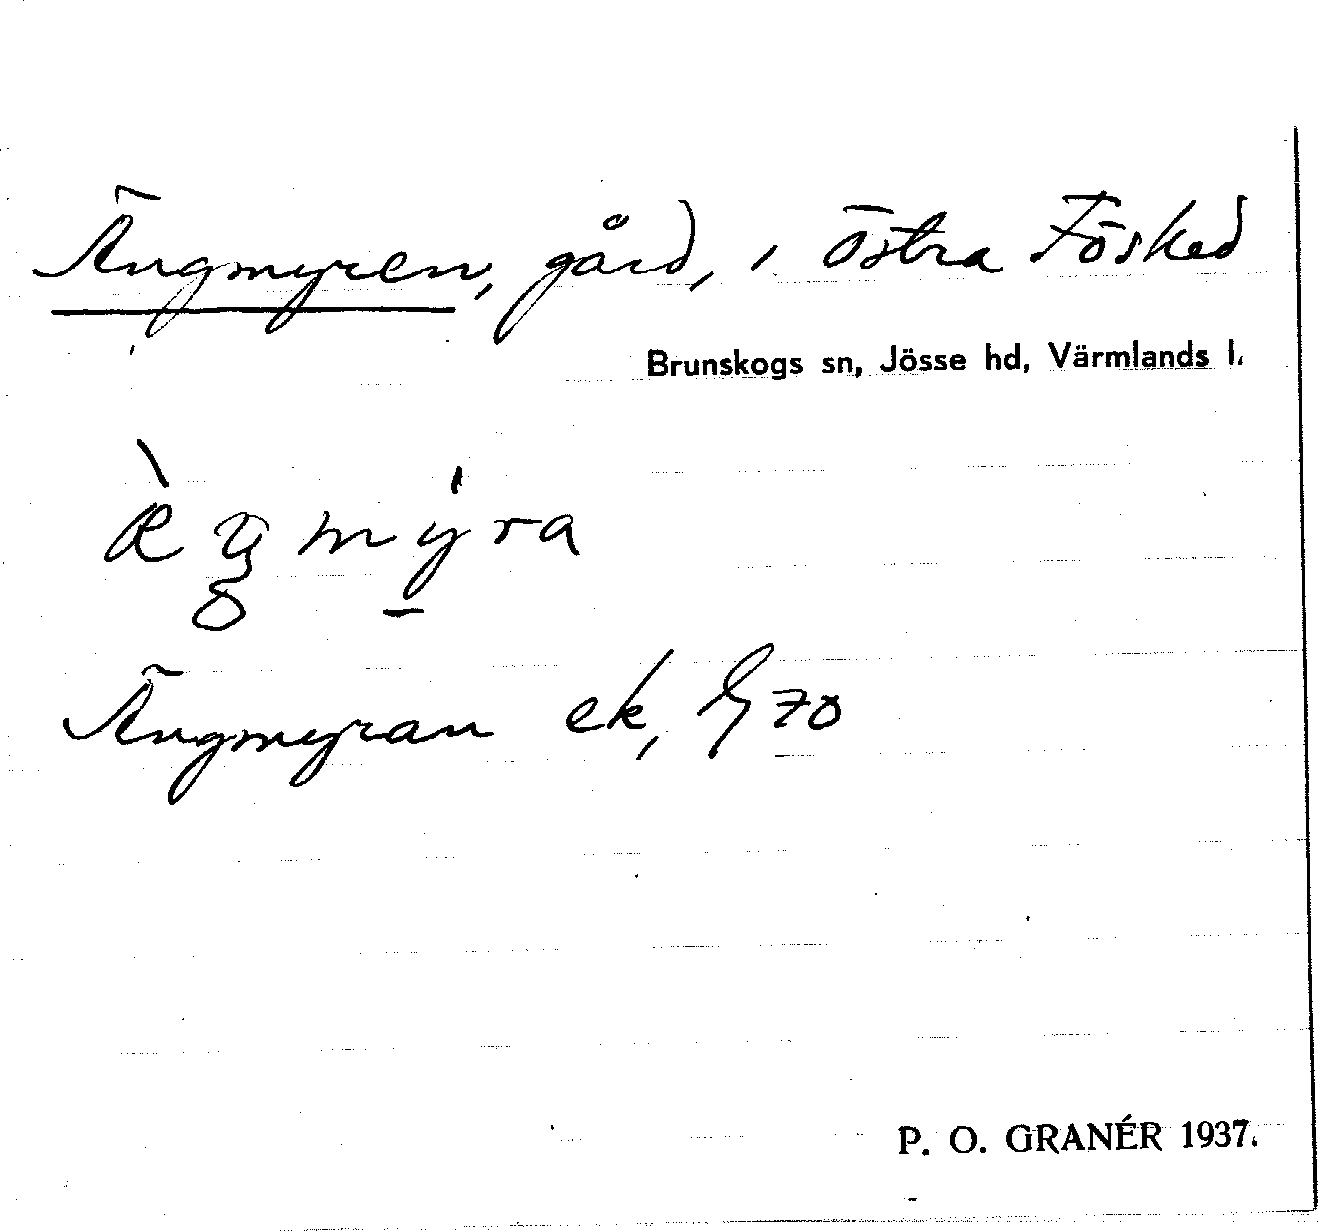 Ängmyren, gård, i östra Fösked
Brunskogs sn, Jösse hd, Värmlands l.
Ängmyran ek,
P. O. GRANÉR 1937.